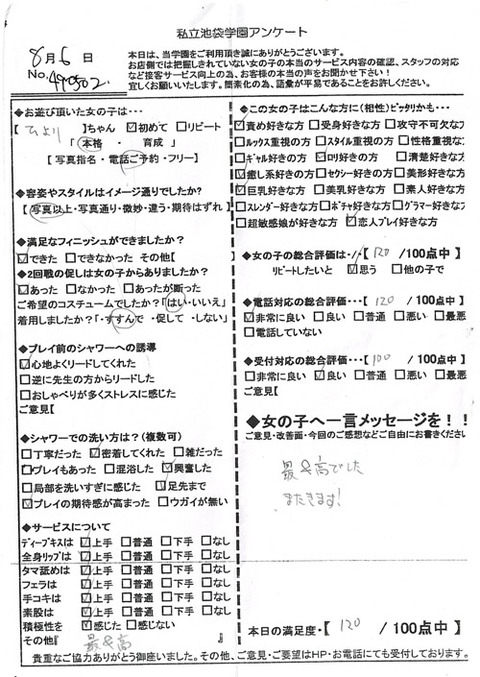 私立池袋学園アンケート
8月6日
No.
本日は、当学園をご利用頂き誠にありがとうございます。
お店側では把握しきれていない女の子の本当のサービス内容の確認、スタッフの対応
など接客サービス向上の為、お客様の本当の声をお聞かせ下さい！
宜しくお願いいたします。簡素化の為、語彙が平易であることをお許しください。
◆お遊び頂いた女の子は・・・
【 ひより 】ちゃん ☑初めて □リピート
「 本格 ・ 育成 」
【 写真指名・電話ご予約・フリー】
◆容姿やスタイルはイメージ通りでしたか?
【写真以上・写真通り・微妙・違う・期待はずれ】
◆満足なフィニッシュができましたか？
☑できた □できなかった その他【
◆2回戦の促しは女の子からありましたか？
☑あった □なかった □あったが断った
ご希望のコスチュームでしたか？「はい・いいえ」
着用しましたか？「・すすんで ・促して ・しない」
◆プレイ前のシャワーへの誘導
☑心地よくリードしてくれた
□逆に先生の方からリードした
□おしゃべりが多くストレスに感じた
ご意見【
◆シャワーでの洗い方は？（複数可）
□丁寧だった ☑密着してくれた □雑だった
□プレイもあった □混浴した ☑興奮した
□局部を洗いすぎに感じた ☑足先まで
☑プレイの期待感が高まった □ウガイが無い
◆サービスについて
ディープキスは ☑上手 □普通 □下手 □なし
全身リップは ☑上手 □普通 □下手 □なし
タマ舐めは ☑上手 □普通 □下手 □なし
フェラは ☑上手 □普通 □下手 □なし
手コキは ☑上手 □普通 □下手 □なし
素股は ☑上手 □普通 □下手 □なし
積極性を ☑感じた □感じない
その他『 最&高 』
◆この女の子はこんな方に（相性）ピッタリかも・・・
☑責め好きな方 □受身好きな方 □攻守不可欠な方
□ルックス重視の方 □スタイル重視の方 □性格重視な
□ギャル好きの方 ☑ロリ好きの方 □清楚好きな方
☑癒し系好きの方 □セクシー好きの方 □美形好きな方
☑巨乳好きな方 □美乳好きな方 □素人好きな方
□スレンダー好きな方 □ポチャ好きな方 □グラマー好きな方
□超敏感娘が好きな方 ☑恋人プレイ好きな方
◆女の子の総合評価は・・【 120 /100点中 】
リピートしたいと ☑思う □他の子で
◆電話対応の総合評価・・・ 120 /100点中】
☑非常に良い □良い □普通 □悪い □最悪
□電話していない
◆受付対応の総合評価・・・【 100 /100点中】
□非常に良い ☑良い □普通 □悪い □最悪
ご意見【
◆女の子へ一言メッセージを！！
ご意見・改善面・今回のご感想などご自由にお書きください
最&高でした
またきます!
本日の満足度・【 120 /100点中】
貴重なご協力ありがとう御座いました。その他、ご意見・ご要望はHP・お電話にても受付しております。